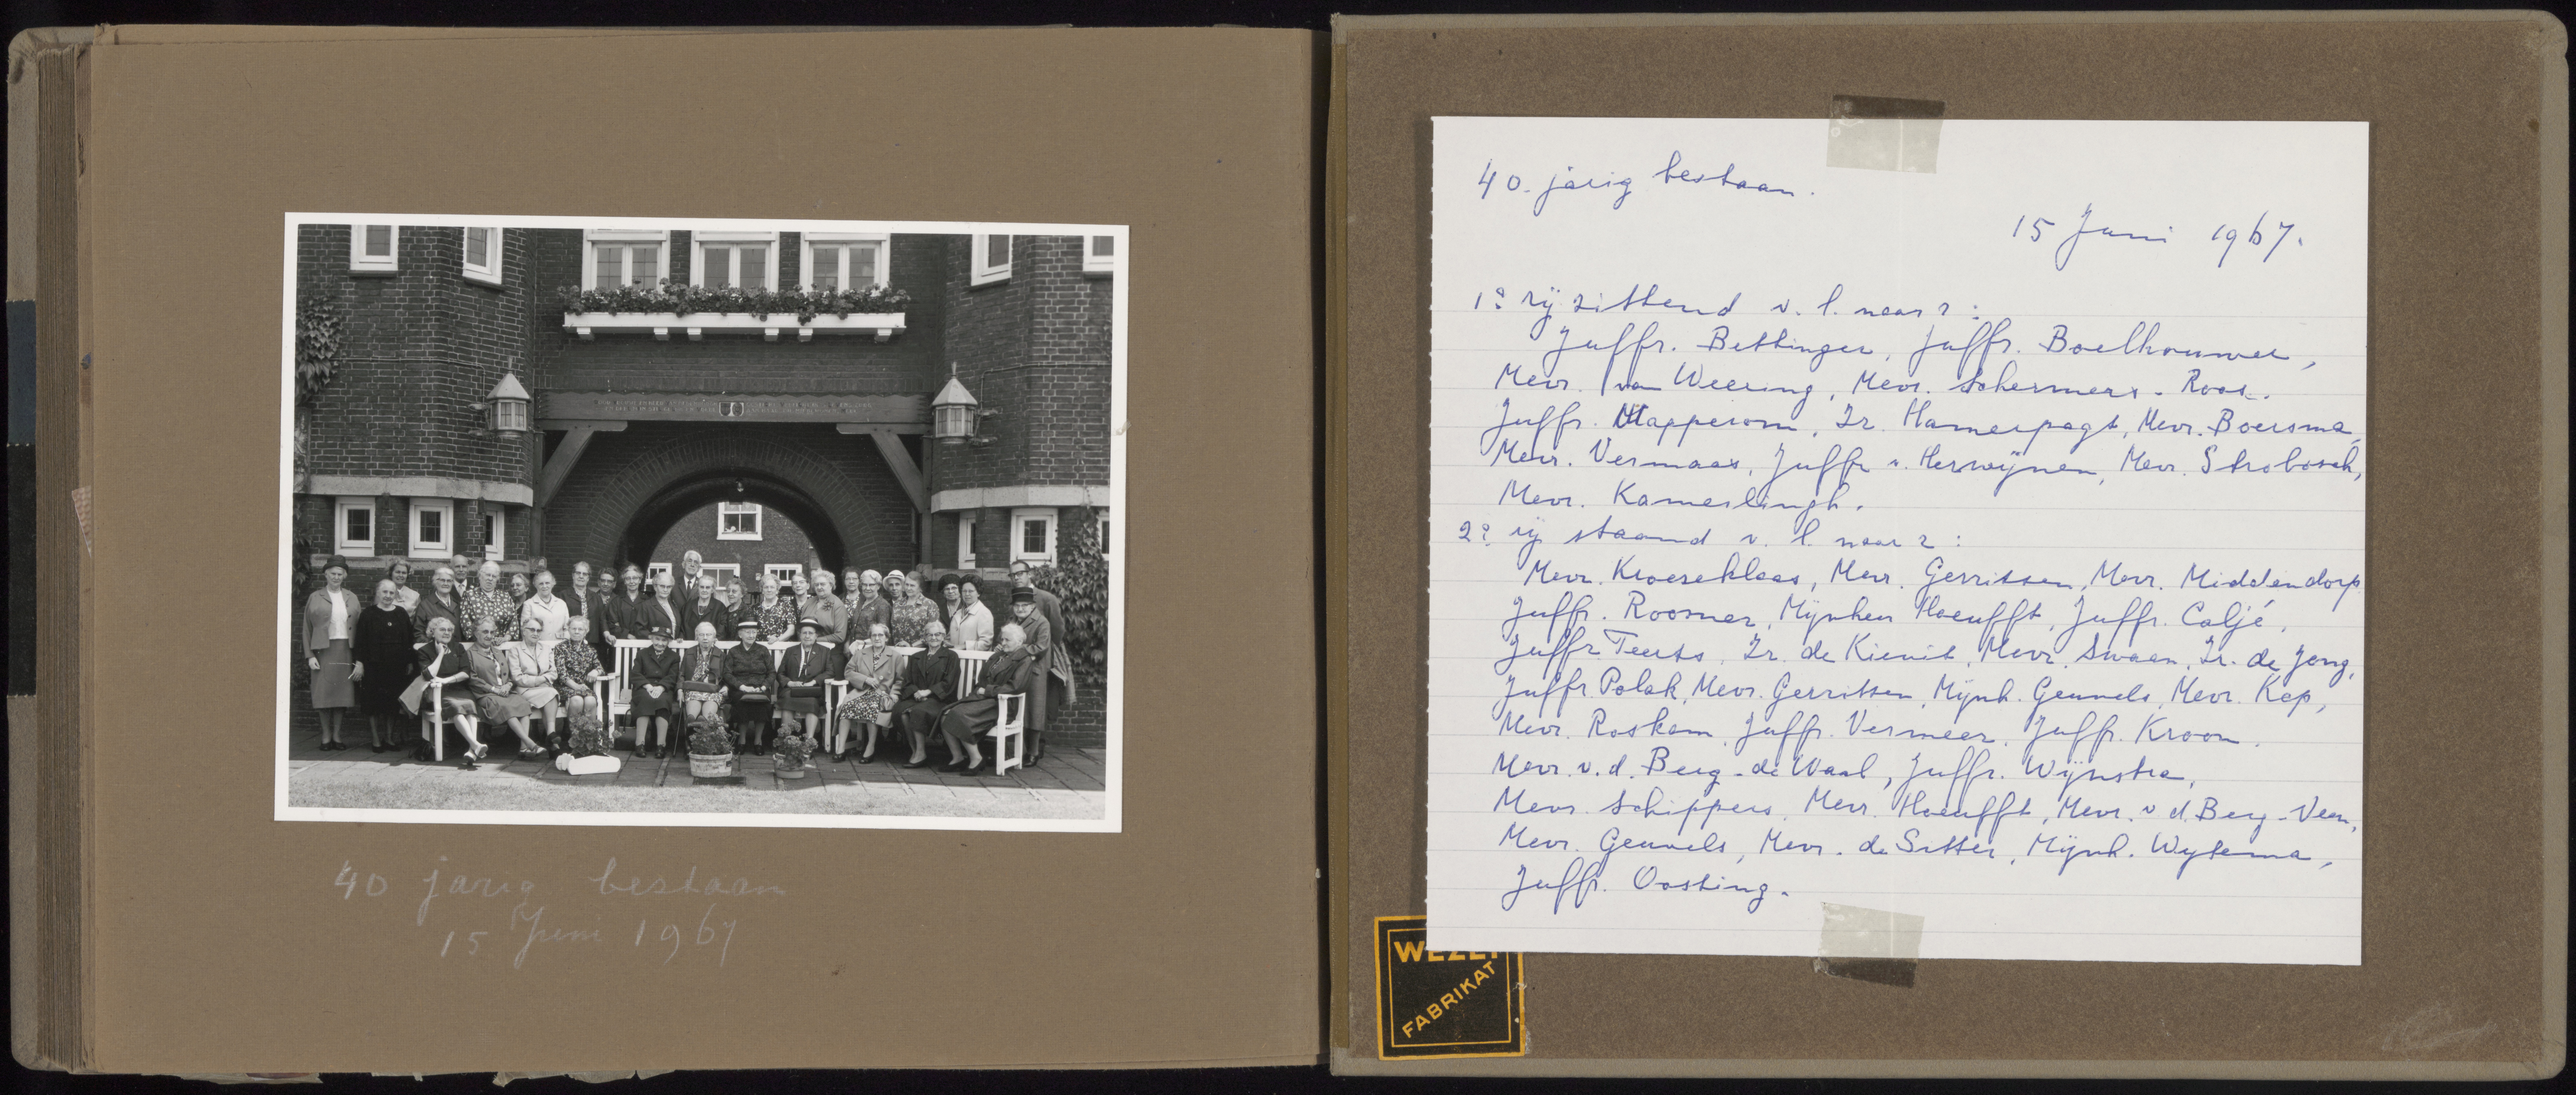 40 jarig bestaan
15 Juni 1967
40. jarig bestaan.
15 Juni 1967.
1e rij zittend v. l. naar r :
Juffr. Bettinger, Juffr. Boelhouwer,
Mevr. van Weering, Mevr. Schermers - Roos.
Juffr. Mapperom, Zr. Hamerpagt, Mevr. Boersma,
Mevr. Vermaas, Juffr v. Herwijnen, Mevr. Strobosch,
Mevr. Kamerlingh.
2e rij staand v. l. naar r :
Mevr. Kroeseklaas, Mevr. Gerritsen, Mevr. Middendorp
Juffr. Roosner, Mijnheer Hoeufft, Juffr. Caljé,
Juffr. Teerts, Zr. de Kievit, Mevr. Swaan, Zr. de Jong,
Juffr. Polak, Mevr. Gerritsen, Mijnh. Geuvels, Mevr. Kep,
Mevr. Roskam, Juffr. Vermeer, Juffr. Kroon.
Mevr. v. d. Berg - de Waal, Juffr. Wijnstra,
Mevr. Schippers, Mevr. Hoeufft, Mevr. v d. Berg - Veen,
Mevr. Geuvels, Mevr. de Sitter, Mijnh. Wytema,
Juffr. Oosting.
FABRIKAT